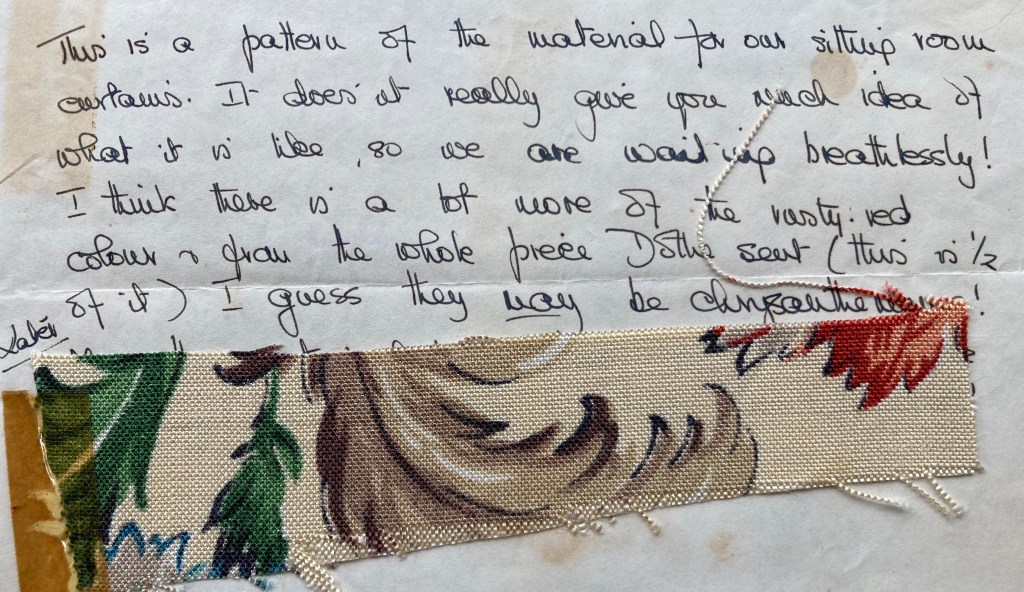 This is a pattern of the material for our sitting room
curtains. It does'nt really give you much idea of
what it is like, so we are waiting breathlessly!
I think there is a lot more of the rusty-red
colour & from the whole piece Dotn sent (this is 1/2
of it) I guess they may be chrysanthemums!
Later